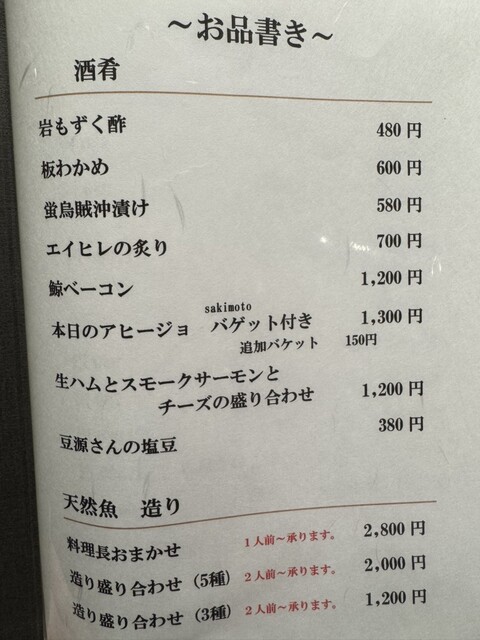 ～お品書き～
酒肴
岩もずく酢 480円
板わかめ 600円
蛍烏賊沖漬け 580円
エイヒレの炙り 700円
鯨ベーコン 1,200円
sakimoto
本日のアヒージョ バゲット付き 1,300円
追加バケット 150円
生ハムとスモークサーモンと
チーズの盛り合わせ 1,200円
豆源さんの塩豆 380円
天然魚 造り
料理長おまかせ 1人前～承ります。 2,800円
造り盛り合わせ（5種） 2人前～承ります。 2,000円
造り盛り合わせ（3種） 2人前～承ります。 1,200円